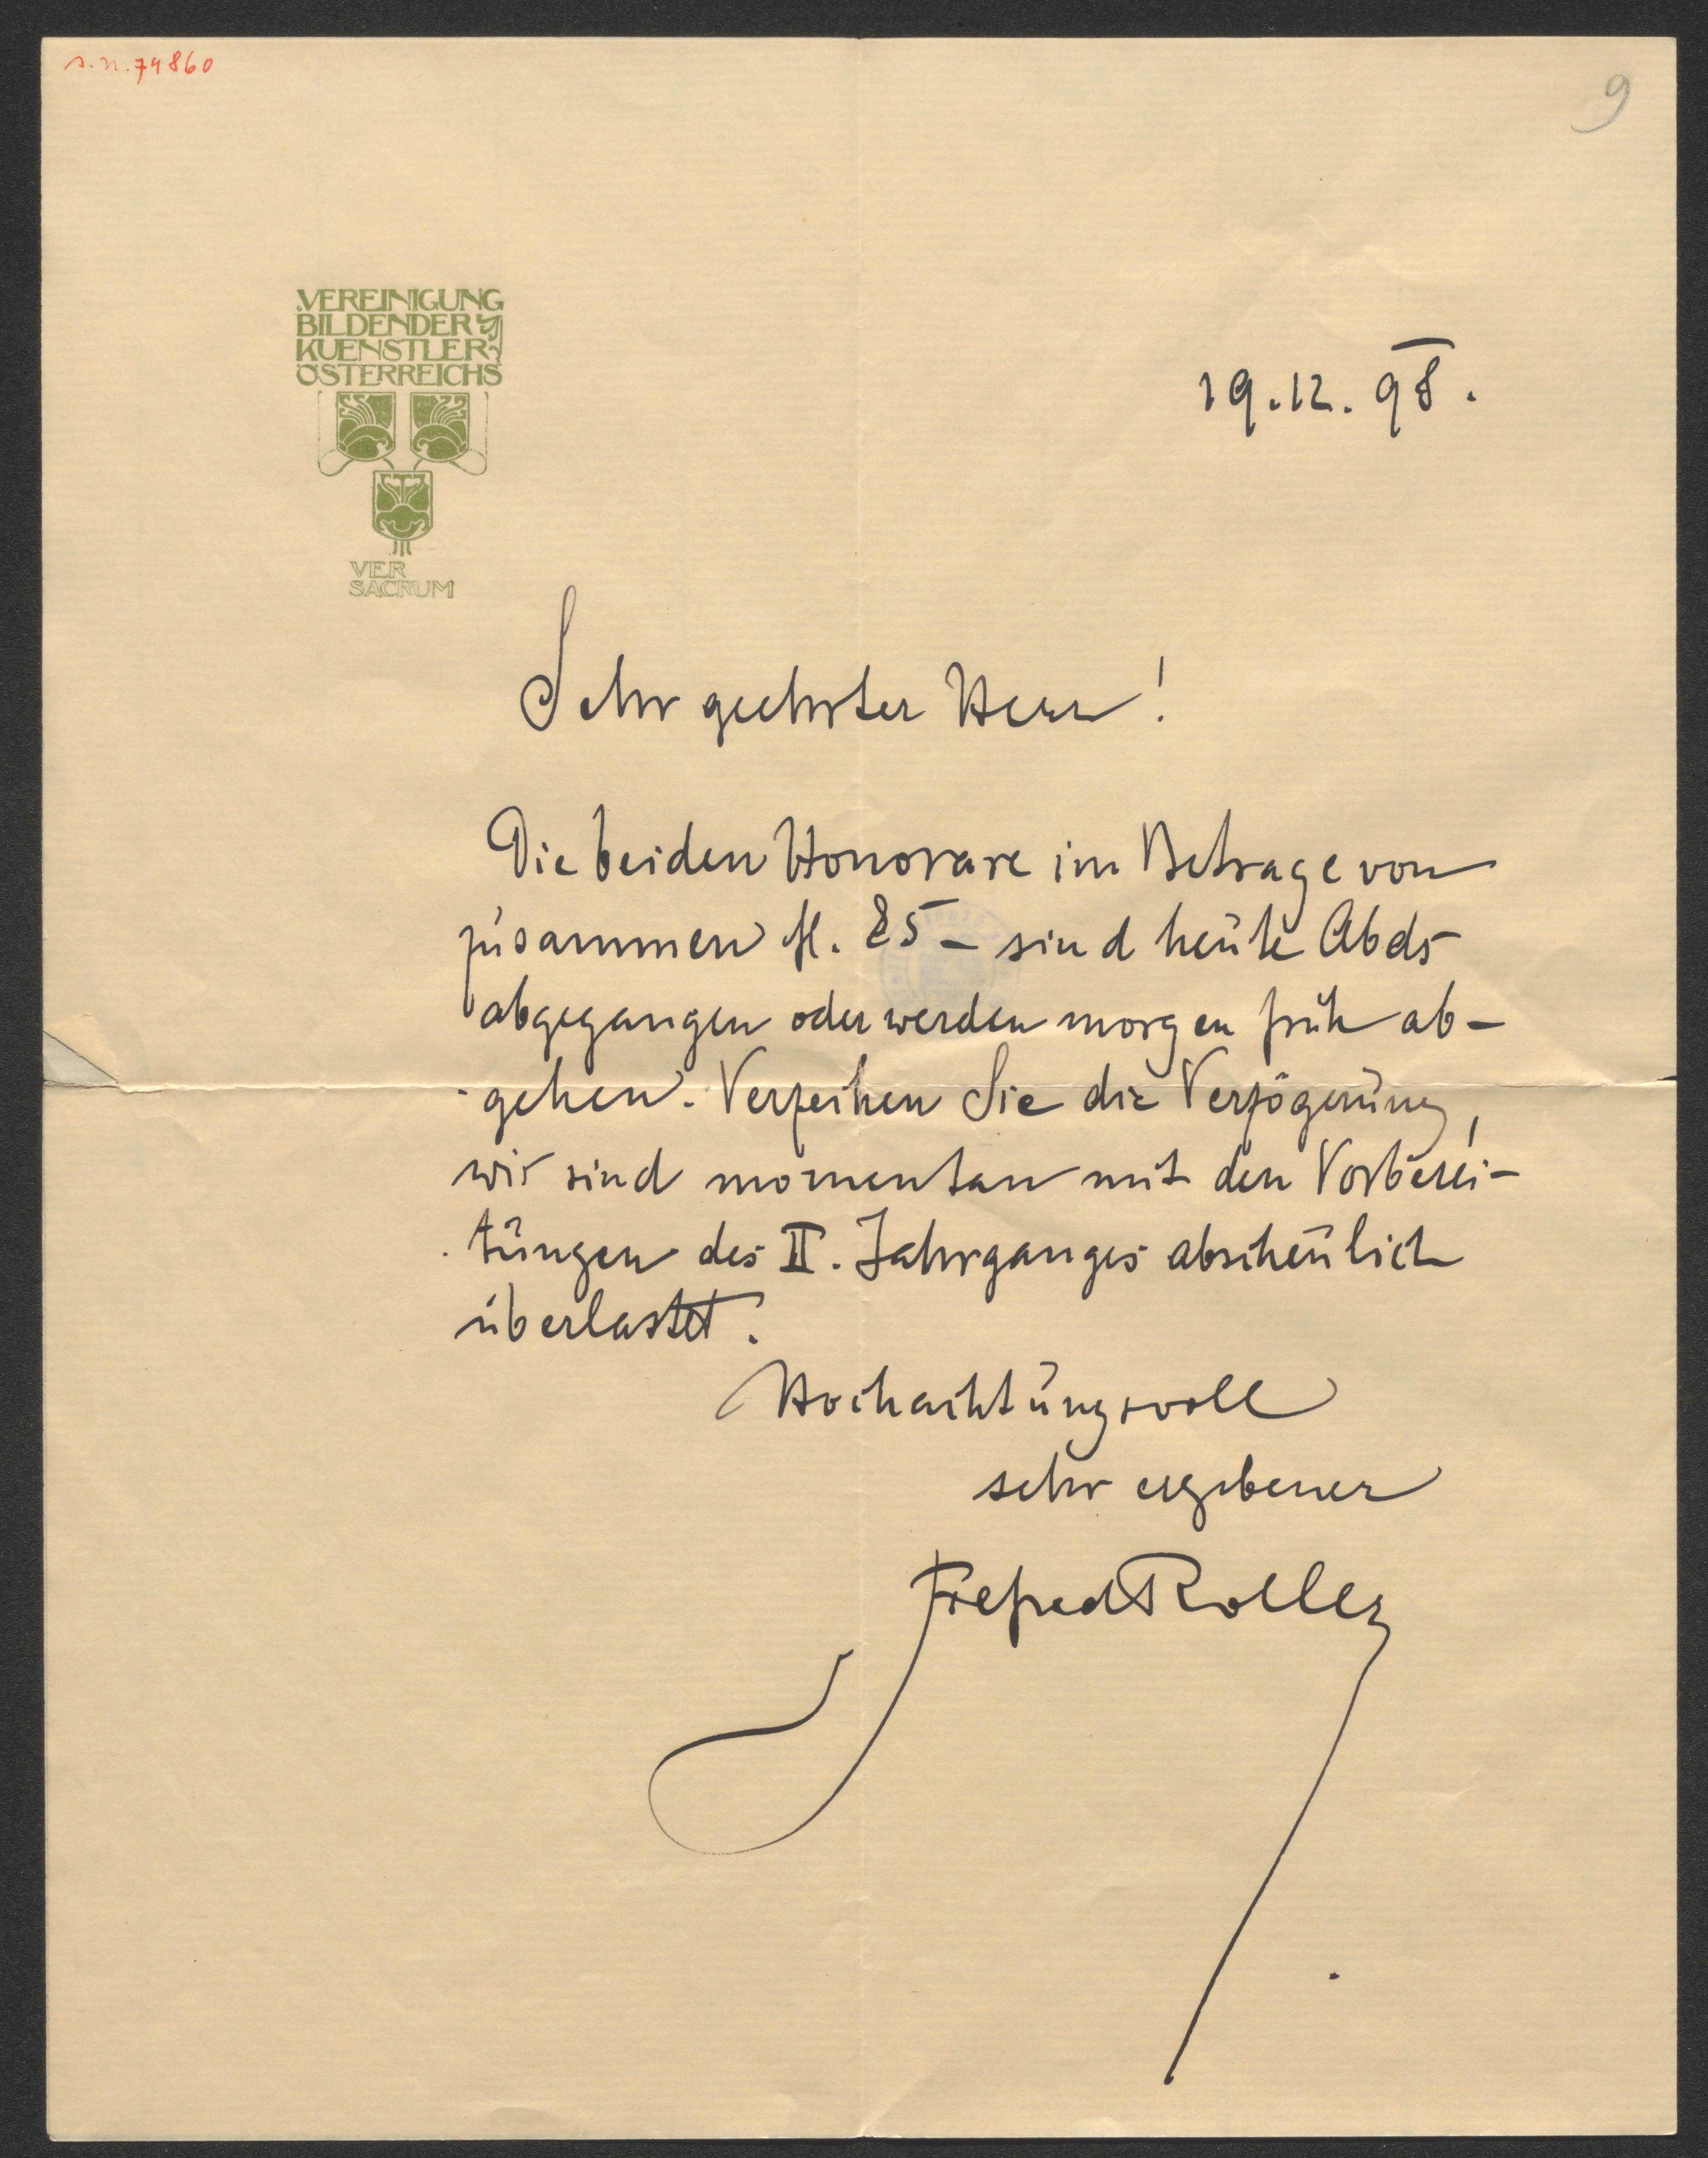 s.n. 74860
9
VEREINIGUNG
BILDENDER
KUENSTLER
ÖSTERREICHS
VER
SACRUM
19.12.98.
Sehr geehrter Herr!
Die beiden Honorare im Betrage von
zusammen fl. 85 – sind heute Abds
abgegangen oder werden morgen früh ab-
gehen. Verzeihen Sie die Verzögerung,
wir sind momentan mit den Vorberei-
tungen des II. Jahrganges abscheulich
überlastet.
Hochachtungsvoll
sehr ergebener
Alfred Roller